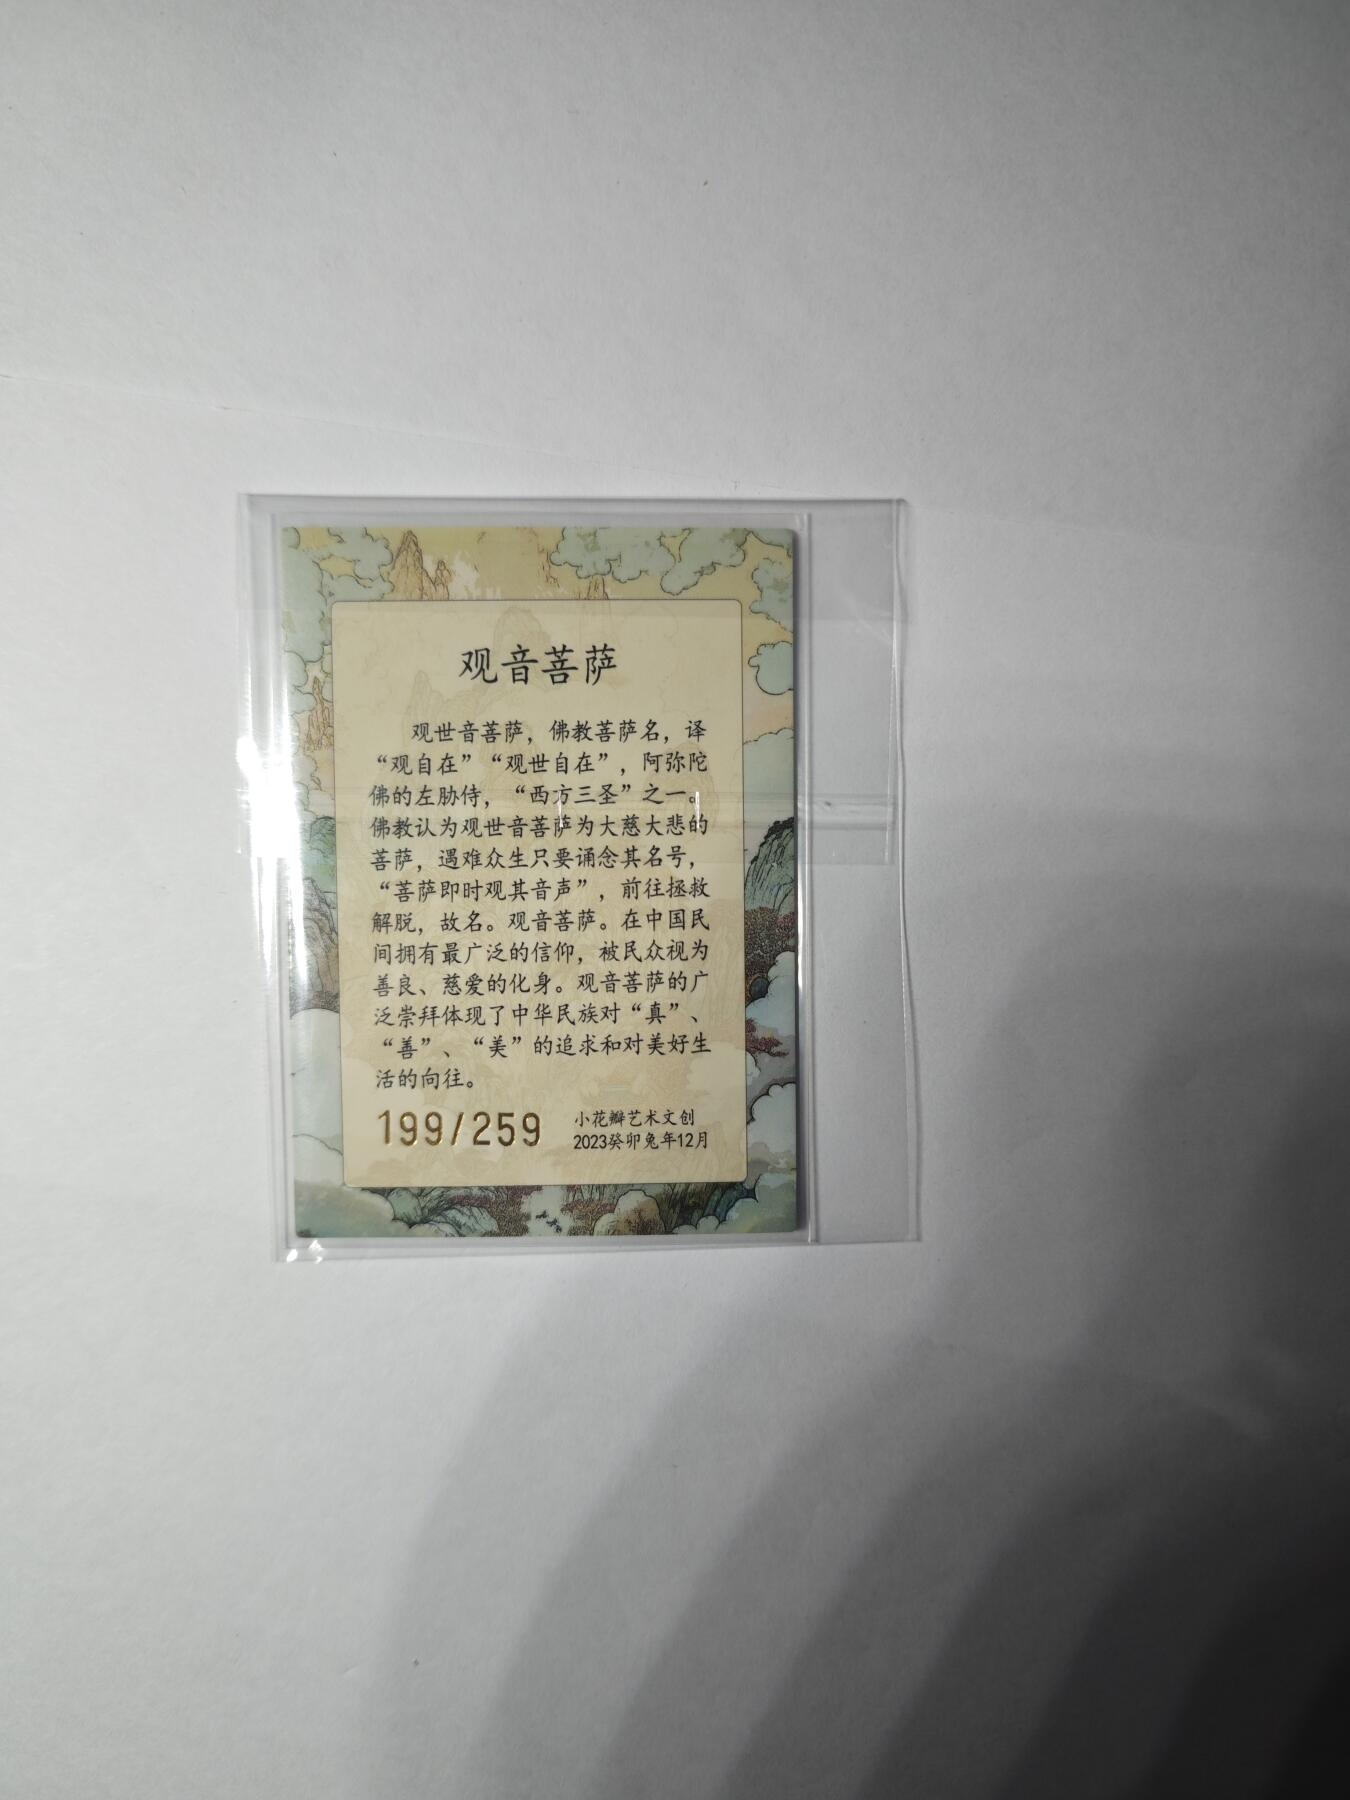 观音菩萨
观世音菩萨，佛教菩萨名，译
“观自在”“观世自在”，阿弥陀
佛的左胁侍，“西方三圣”之一。
佛教认为观世音菩萨为大慈大悲的
菩萨，遇难众生只要诵念其名号，
“菩萨即时观其音声”，前往拯救
解脱，故名。观音菩萨。在中国民
间拥有最广泛的信仰，被民众视为
善良、慈爱的化身。观音菩萨的广
泛崇拜体现了中华民族对“真”、
“善”、“美”的追求和对美好生
活的向往。
199/259
小花瓣艺术文创
2023癸卯兔年12月